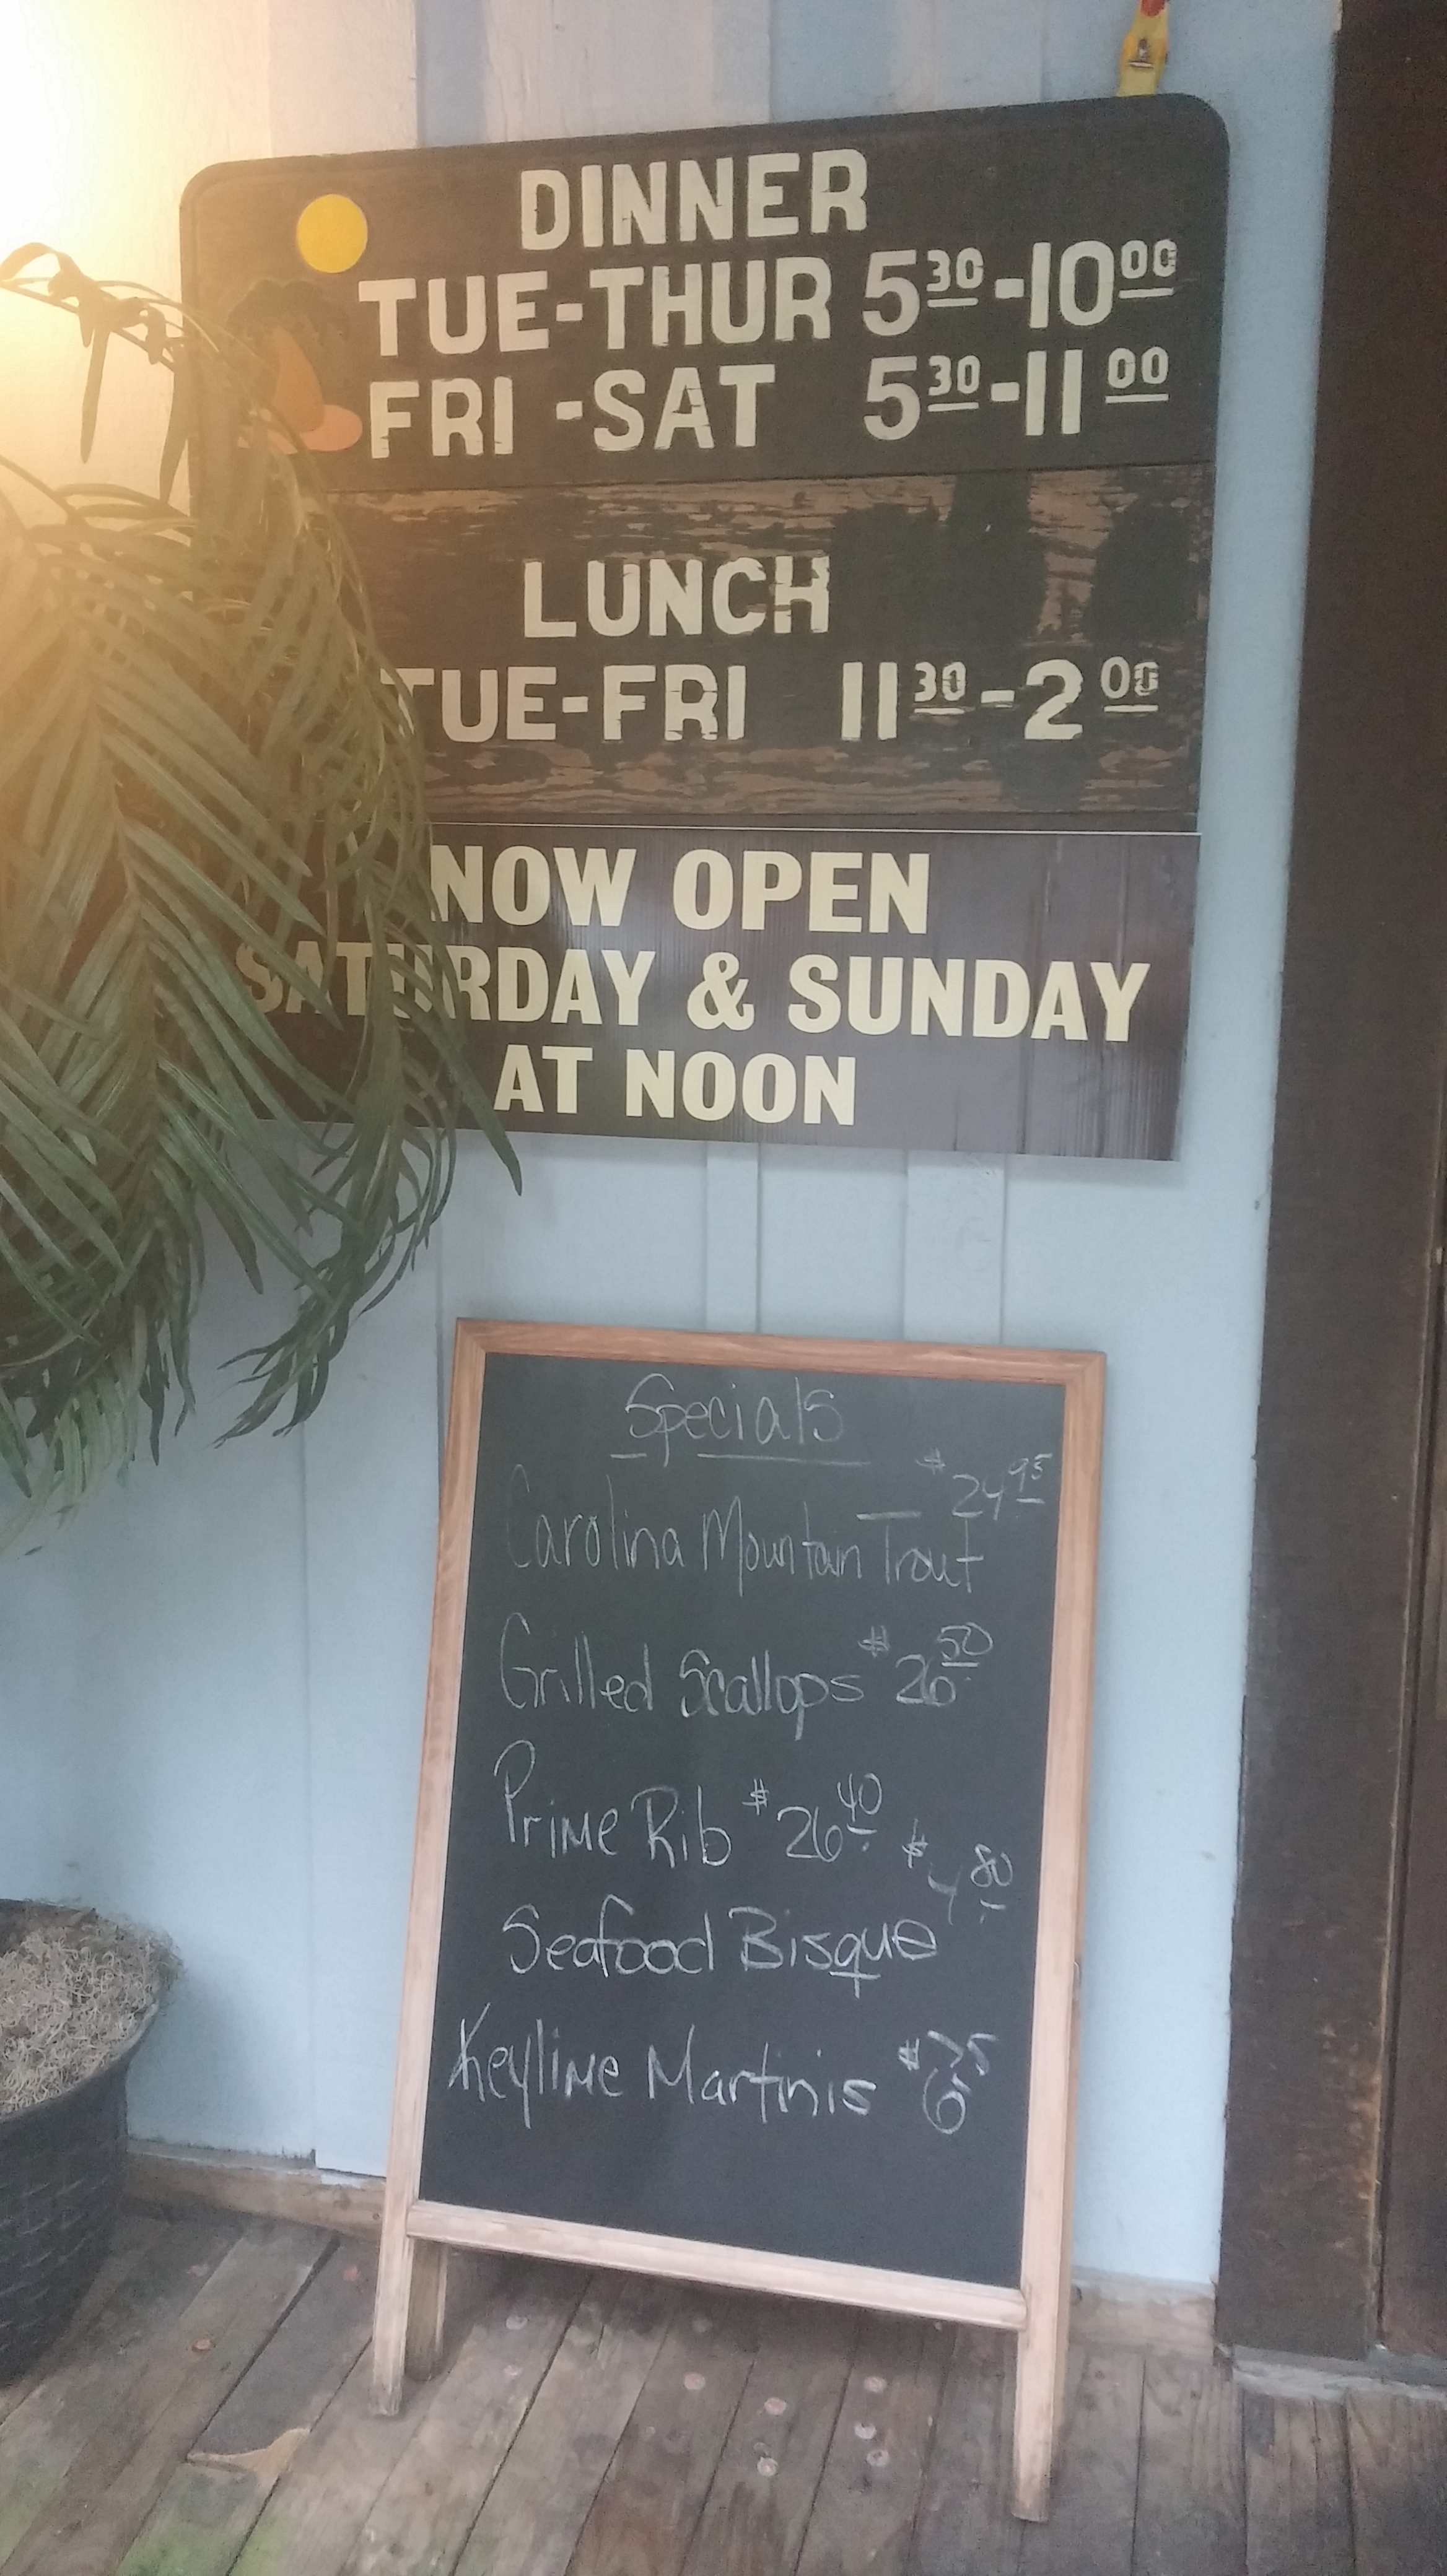 DINNER
TUE-THUR 530-1000
FRI-SAT 530-1100
LUNCH
TUE-FRI 1130-200
NOW OPEN
SATURDAY & SUNDAY
AT NOON
Specials
$2495
Carolina Mountain Trout
Grilled Scallops $2650
Prime Rib $2640
$480
Seafood Bisque
Keylime Martinis $675